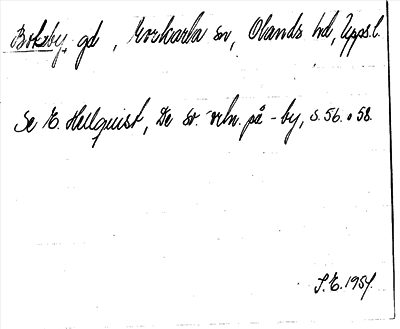 Boksby, gd, Morkarla sn, Olands hd, Upps. l.
Se E. Hellquist, De sv. ortn. på -by, s. 56. o 58.
S.E. 1951.